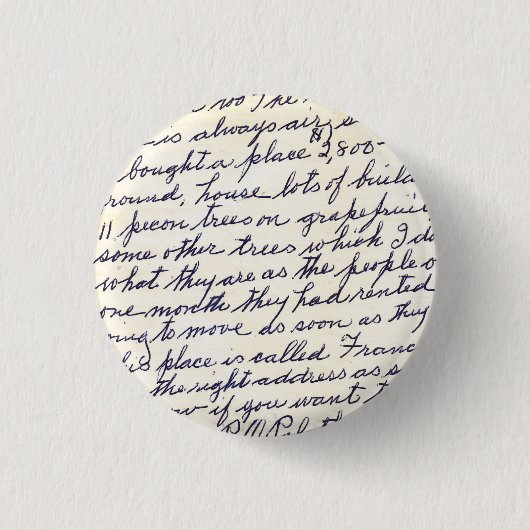 is always air
bought a place $2,800-
round, house lots of buil
11 pecon trees on grapefrui
some other trees which I do
what they are as the people o
one month they had rented
ing to move as soon as they
is place is called Franc
the right address as s
w if you want t